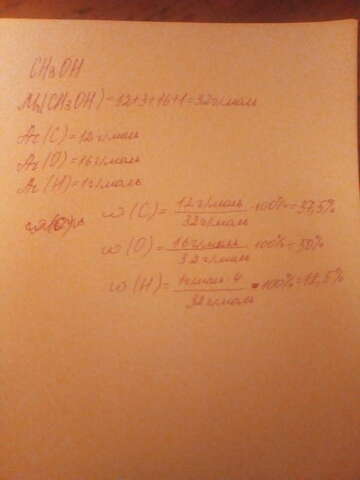 CH3OH
Mr(CH3OH)=12+3+16+1=32г/моль
Ar(C)=12г/моль
Ar(O)=16г/моль
Ar(H)=1г/моль
ω(C)=12г/моль/32г/моль·100%=37,5%
ω(O)=16г/моль/32г/моль·100%=50%
ω(H)=1г/моль·4/32г/моль·100%=12,5%